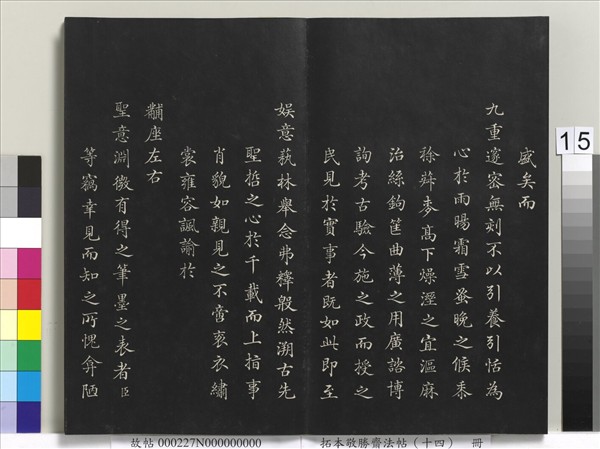 盛矣而
九重邃密無刻不以引養引恬為
心於雨暘霜雪蚤晚之候黍
稌麰麥高下燥溼之宜漚麻
治絲鉤筐曲薄之用廣諮博
詢考古驗今施之政而授之
民見於實事者既如此即至
娛意蓺林舉念弗釋殷然溯古先
聖哲之心於千載而上指事
肖貌如親見之不啻袞衣繡
裳雍容諷諭於
黼座左右
聖意淵微有得之筆墨之表者臣
等竊幸見而知之所愧弇陋
15
故帖 000227N000000000
拓本敬勝齋法帖（十四） 冊